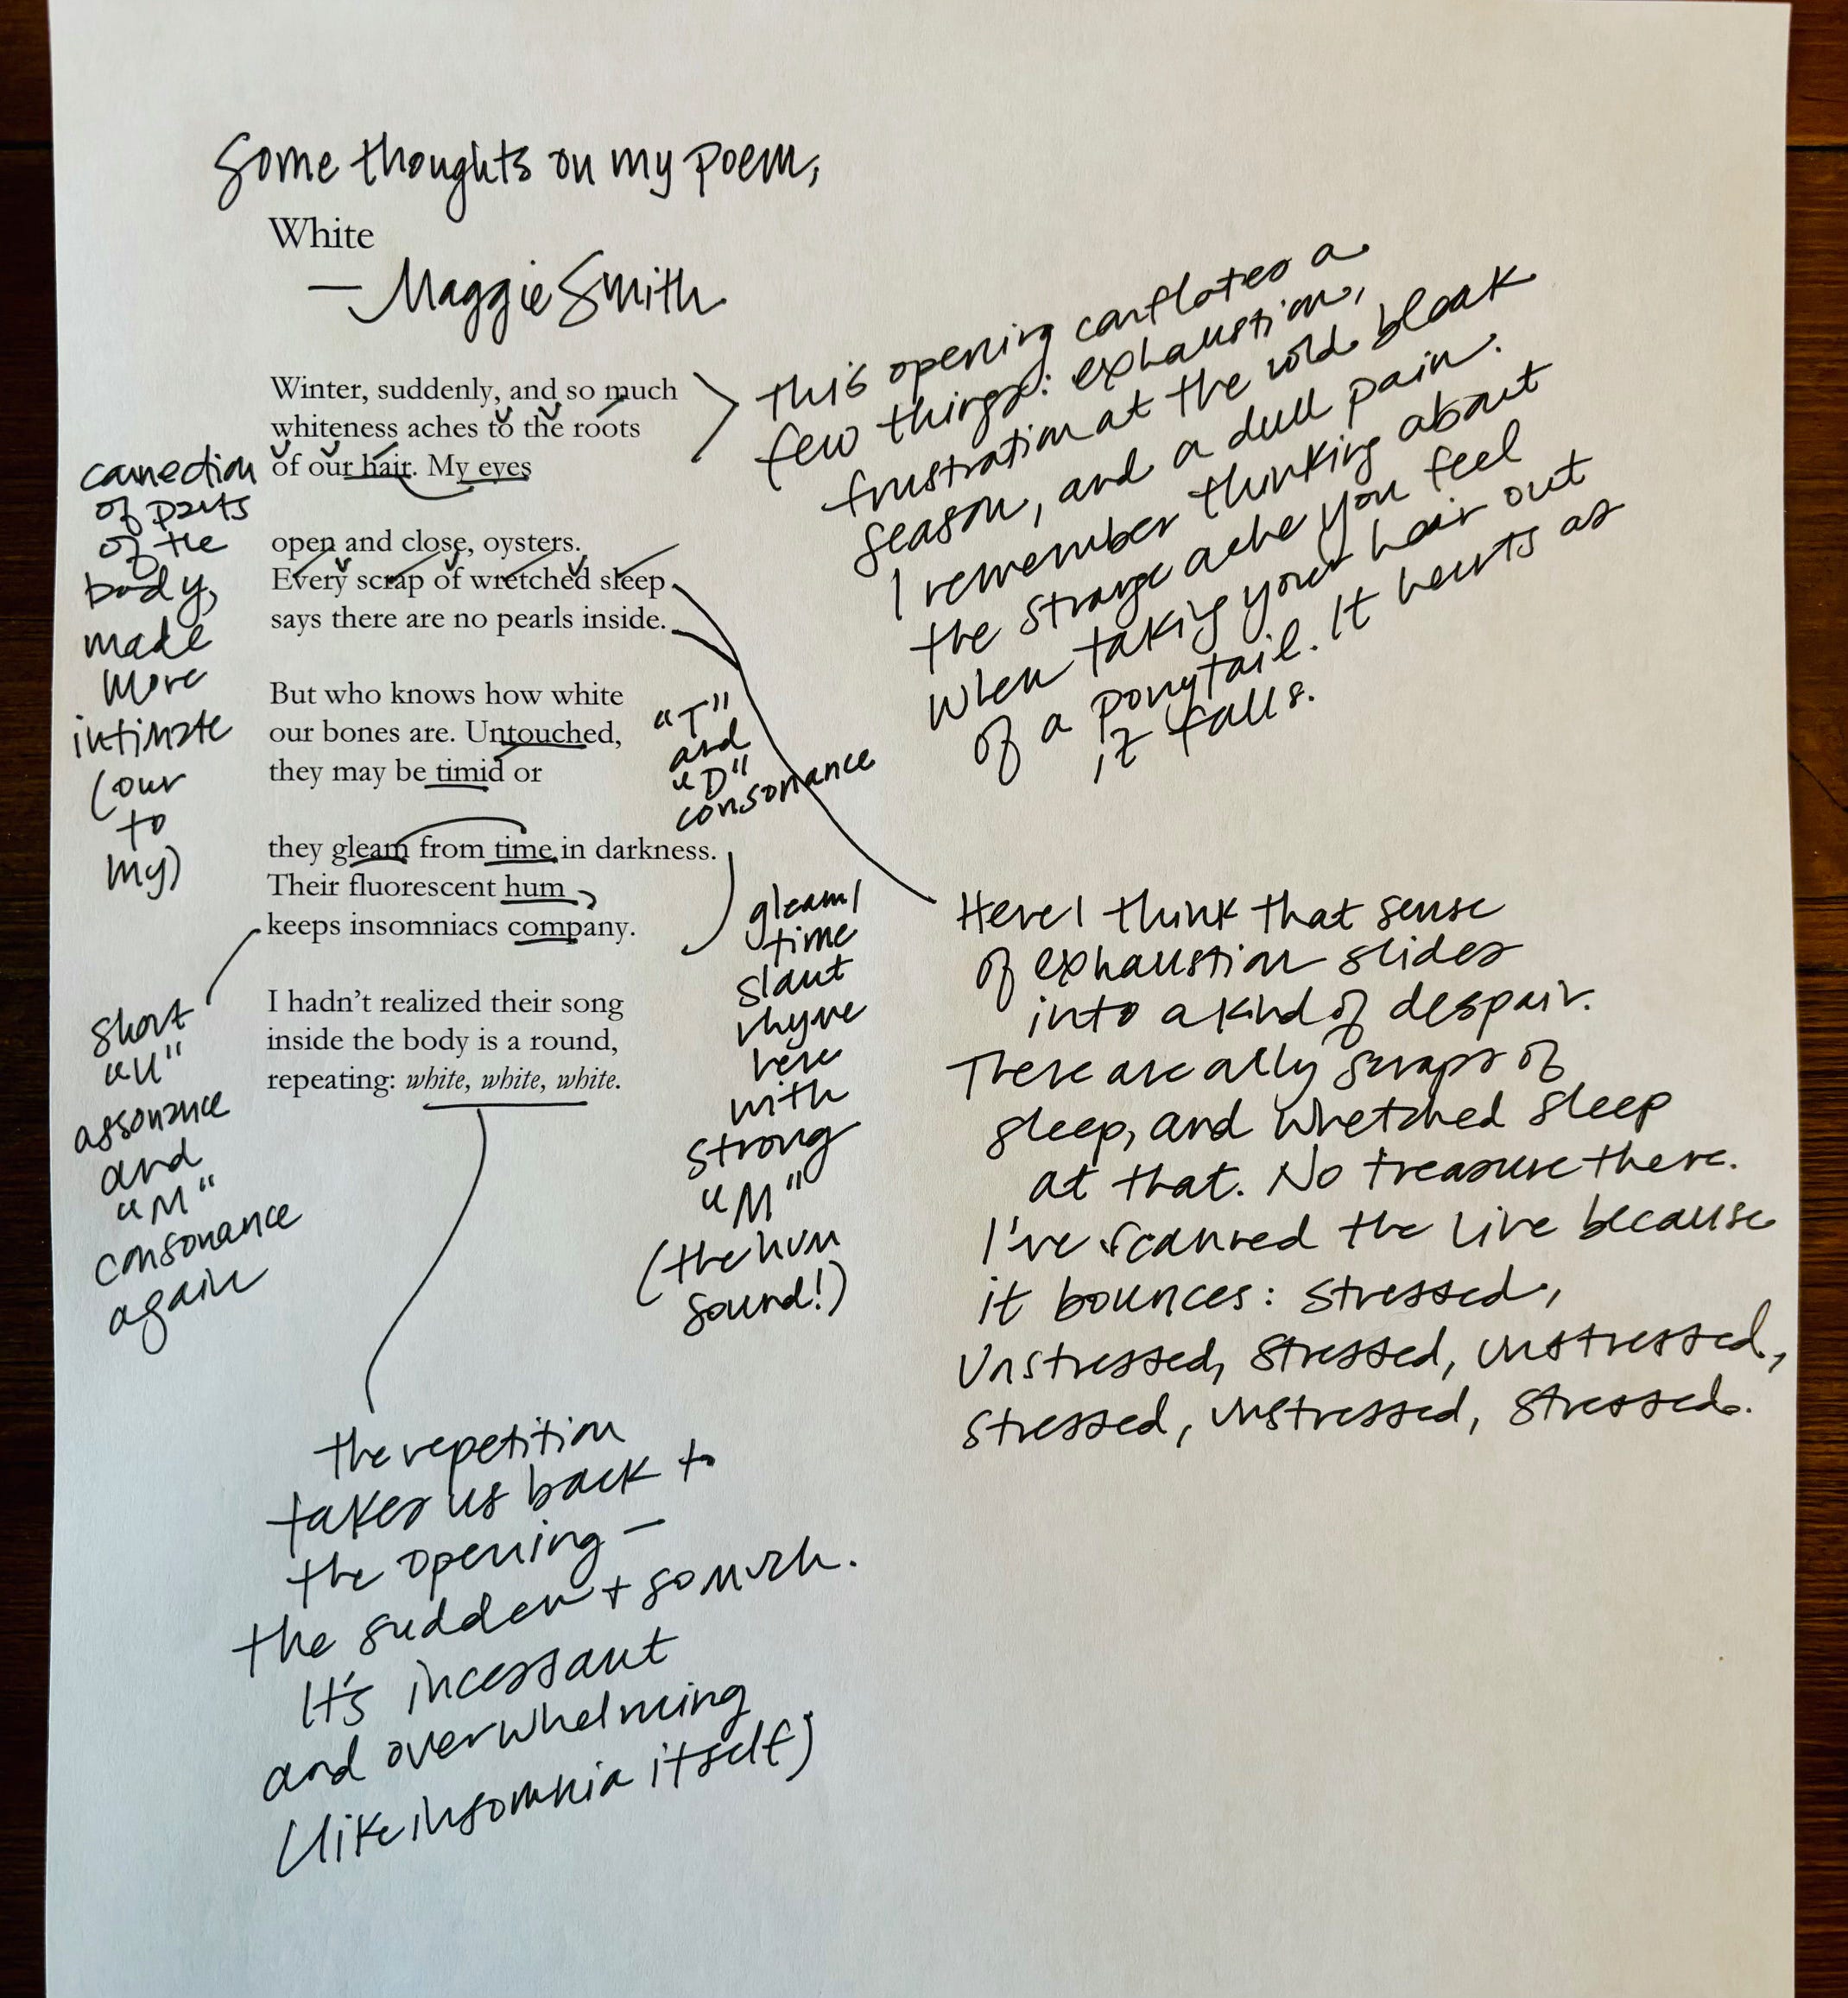 Some thoughts on my poem,
White
— Maggie Smith
Winter, suddenly, and so much
whiteness aches to the roots
of our hair. My eyes
open and close, oysters.
Every scrap of wretched sleep
says there are no pearls inside.
But who knows how white
our bones are. Untouched,
they may be timid or
they gleam from time in darkness.
Their fluorescent hum
keeps insomniacs company.
I hadn't realized their song
inside the body is a round,
repeating: white, white, white.
This opening conflates a
few things: exhaustion,
frustration at the cold bleak
season, and a dull pain.
I remember thinking about
the strange ache you feel
when taking your hair out
of a ponytail. It hurts as
it falls.
connection
of parts
of the
body,
made
more
intimate
(our
to
my)
"T"
and
"D"
consonance
gleam/
time
slant
rhyme
here
with
strong
"M"
(the hum
sound!)
Here I think that sense
of exhaustion slides
into a kind of despair.
There are only scraps of
sleep, and wretched sleep
at that. No treasure there.
I've scanned the line because
it bounces: stressed,
unstressed, stressed, unstressed,
stressed, unstressed, stressed.
short
"U"
assonance
and
"M"
consonance
again
the repetition
takes us back to
the opening —
the sudden + so much.
It's incessant
and overwhelming
(like insomnia itself)